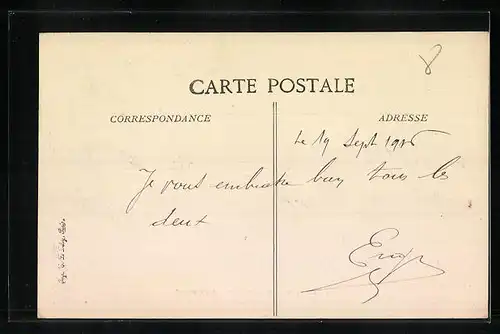 8
CARTE POSTALE
CORRESPONDANCE
ADRESSE
Le 19 Sept 1916
Je vous embrasse bien tous les
deux